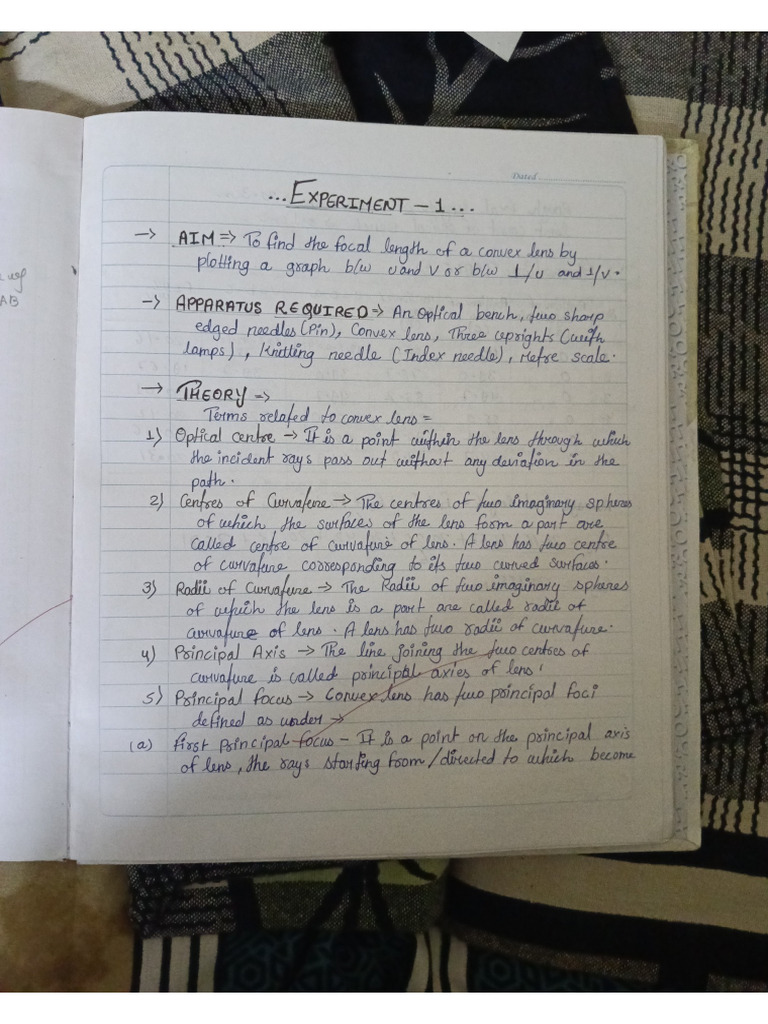 Dated
... EXPERIMENT - 1 ...
→ AIM ⇒ To find the focal length of a convex lens by
plotting a graph b/w u and v or b/w 1/u and 1/v.
→ APPARATUS REQUIRED ⇒ An Optical bench, two sharp
edged needles (Pin), Convex lens, Three uprights (with
lamps), Knitting needle (Index needle), Metre scale.
→ THEORY ⇒
Terms related to convex lens =
1) Optical centre → It is a point within the lens through which
the incident rays pass out without any deviation in the
path.
2) Centres of Curvature → The centres of two imaginary spheres
of which the surfaces of the lens form a part are
called centre of curvature of lens. A lens has two centre
of curvature corresponding to its two curved surfaces.
3) Radii of Curvature → The Radii of two imaginary spheres
of which the lens is a part are called radii of
curvature of lens. A lens has two radii of curvature.
4) Principal Axis → The line joining the two centres of
curvature is called principal axies of lens.
5) Principal focus → Convex lens has two principal foci
defined as under →
(a) First Principal focus - It is a point on the principal axis
of lens, the rays starting from/directed to which become
AB